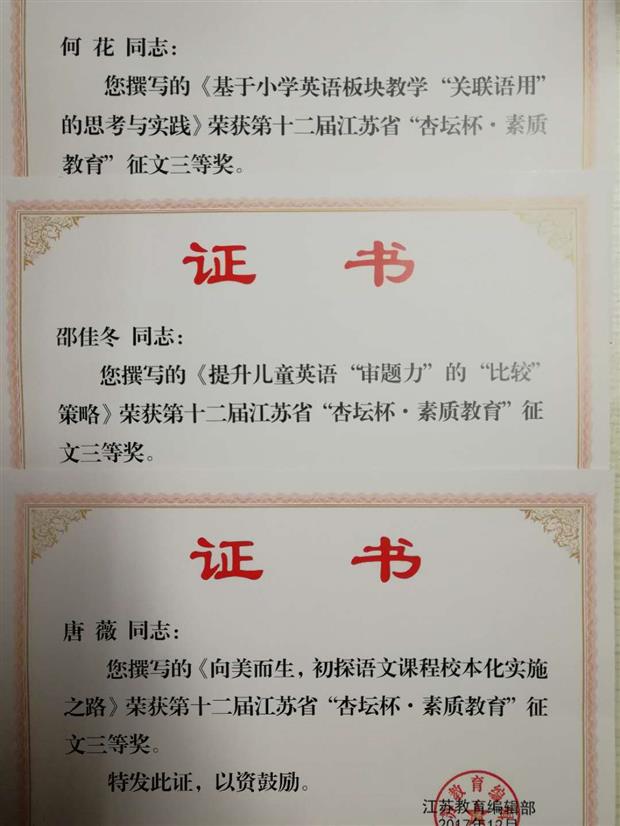 何 花 同志：
您撰写的《基于小学英语板块教学“关联语用”
的思考与实践》荣获第十二届江苏省“杏坛杯·素质
教育”征文三等奖。
证 书
邵佳冬 同志：
您撰写的《提升儿童英语“审题力”的“比较”
策略》荣获第十二届江苏省“杏坛杯·素质教育”征
文三等奖。
证 书
唐 薇 同志：
您撰写的《向美而生，初探语文课程校本化实施
之路》荣获第十二届江苏省“杏坛杯·素质教育”征
文三等奖。
特发此证，以资鼓励。
教育编
江苏教育编辑部
2017年12月